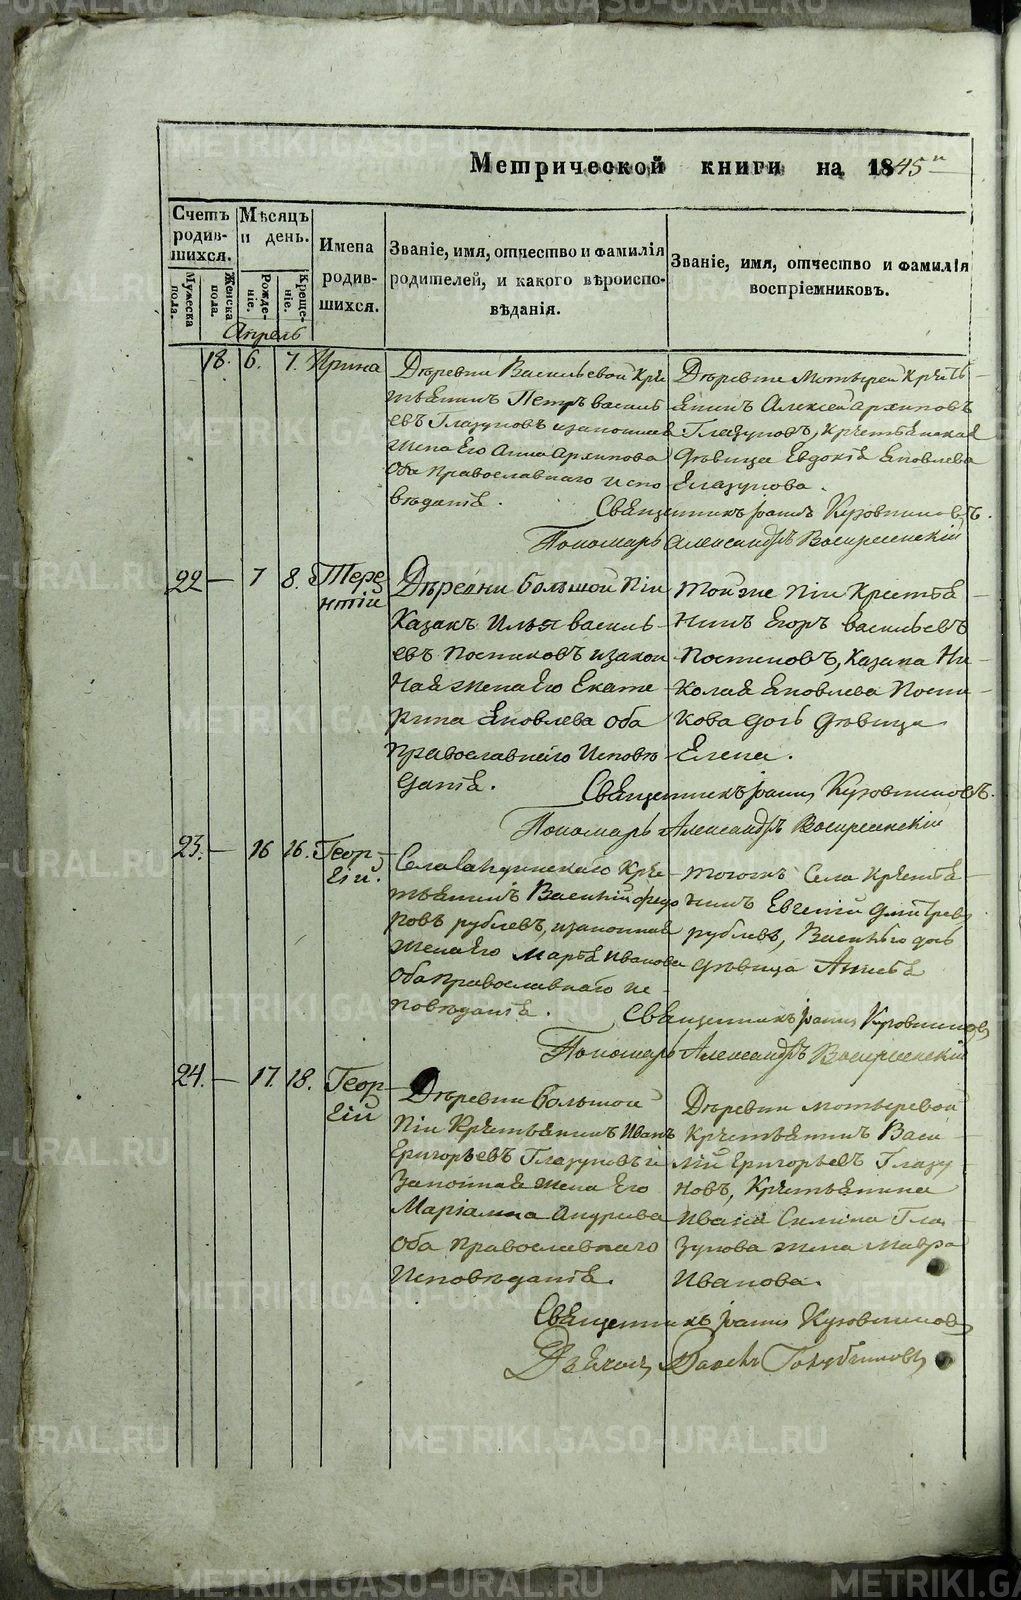 Метрической книги на 1845й
Счетъ родившихся.
Мѣсяцъ и день.
Имена родившихся.
Званіе, имя, отчество и фамилія родителей, и какого вѣроисповѣданія.
Званіе, имя, отчество и фамилія воспріемниковъ.
Мужеска пола.
Женска пола.
Рожденіе.
Крещеніе.
Апрель
18. 6. 7. Ирина
Деревни Васильевой Кре
стьянинъ Петръ василь
евъ Глазуновъ изаконная
жена Его Анна Архипова
Оба православнаго испо
вѣданія.
Деревни Мотырей Кресть
янинъ Алексей архиповъ
Глазуновъ, крестьянская
дѣвица Евдокія Яковлева
Глазунова.
Священникъ Іоаннъ Кузовниковъ.
Пономарь Александръ Воскресенскій
22 — 7 8. Тере
нтій
Деревни Большой Піи
Казакъ Илья василь
евъ Постиковъ изакон
ная жена Его Екате
рина Яковлева оба
православнаго Исповѣ
данія.
Той же Піи Крестья
нинъ Егоръ васильевъ
Постиковъ, Казака Ни
колая Яковлева Пости
кова дочь дѣвица
Елена.
Священникъ Іоаннъ Кузовниковъ.
Пономарь Александръ Воскресенскій
23. — 16 16. Геор
гій.
Села Крe
стьянинъ Василій федо
ровъ рублевъ, изаконная
жена Его Марѳа Иванова
Оба православнаго ис
повѣданія.
тогожъ Села крестья
нинъ Евгеній Дмитревъ
рублевъ, дочь
дѣвица
Священникъ Іоаннъ Кузовниковъ
Пономарь Александръ Воскресенскій
24. — 17. 18. Геор
гій
Деревни большой
Піи Крестьянинъ Иванъ
Григорьевъ Глазуновъ и
Законная жена Его
Маріамна Андреева
Оба Православнаго
Исповѣданія.
Деревни мотыревой
Крестьянинъ Васи
лій Григорьевъ Глазу
новъ, Крестьянина
Ивана Гла
зунова жена Мавра
Иванова.
Священникъ Іоаннъ Кузовниковъ
METRIKI.GASO-URAL.RU